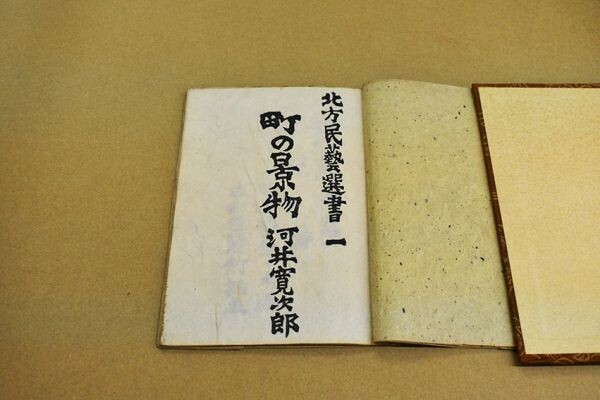 北方民藝選書 一
町の景物 河井寛次郎